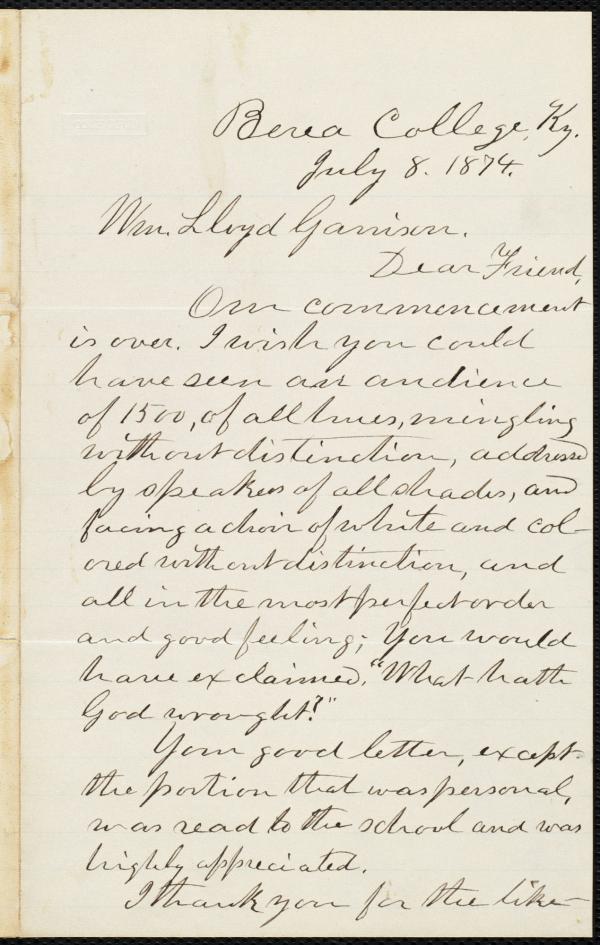 Berea College, Ky.
July 8. 1874.
Wm. Lloyd Garrison.
Dear Friend,
Our commencement
is over. I wish you could
have seen our audience
of 1500, of all hues, mingling
without distinction, addressed
by speakers of all shades, and
facing a choir of white and col-
ored without distinction, and
all in the most perfect order
and good feeling; You would
have exclaimed, "What hath
God wrought!"
Your good letter, except
the portion that was personal,
was read to the school and was
highly appreciated.
I thank you for the like-